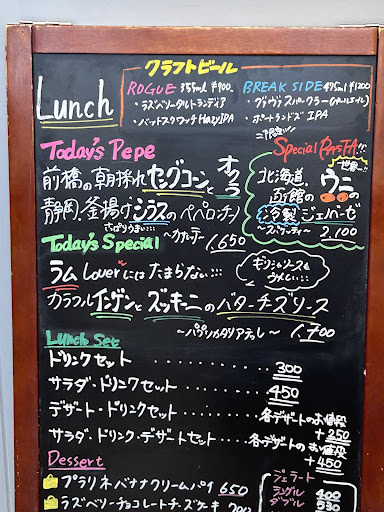 クラフトビール
Lunch
ROGUE 355ml ¥900
・ラズベリータルトランデブア
・バットスクワッチ HazyIPA
BREAK SIDE 475ml ¥1200
・ポートランドズ IPA
Today's Pepe
前橋の朝採れヤングコーンとオクラ
静岡、釜揚げシラスのペペロンチーノ
さっぱりうまい
1,650
Special PASTA!!
世界一!!
北海道、函館のウニの
冷製ジェノベーゼ
2,100
Today's Special
ラムLoverにはたまらない
カラフルインゲンとズッキーニのバターチーズソース
1,700
Lunch Set
ドリンクセット 300
サラダ・ドリンクセット 450
デザート・ドリンクセット 各デザートのお値段 +250
サラダ・ドリンク・デザートセット 各デザートのお値段 +450
Dessert
プラリネバナナクリームパイ 650
ラズベリーチョコレートチーズケーキ
ジェラート
シングル 400
ダブル 530